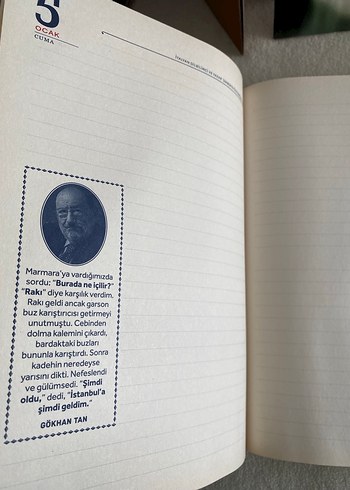 5
OCAK
CUMA
Marmara'ya vardığımızda
sordu: "Burada ne içilir?"
"Rakı" diye karşılık verdim.
Rakı geldi ancak garson
buz karıştırıcısı getirmeyi
unutmuştu. Cebinden
dolma kalemini çıkardı,
bardaktaki buzları
bununla karıştırdı. Sonra
kadehin neredeyse
yarısını dikti. Nefeslendi
ve gülümsedi. "Şimdi
oldu," dedi, "İstanbul'a
şimdi geldim."
GÖKHAN TAN